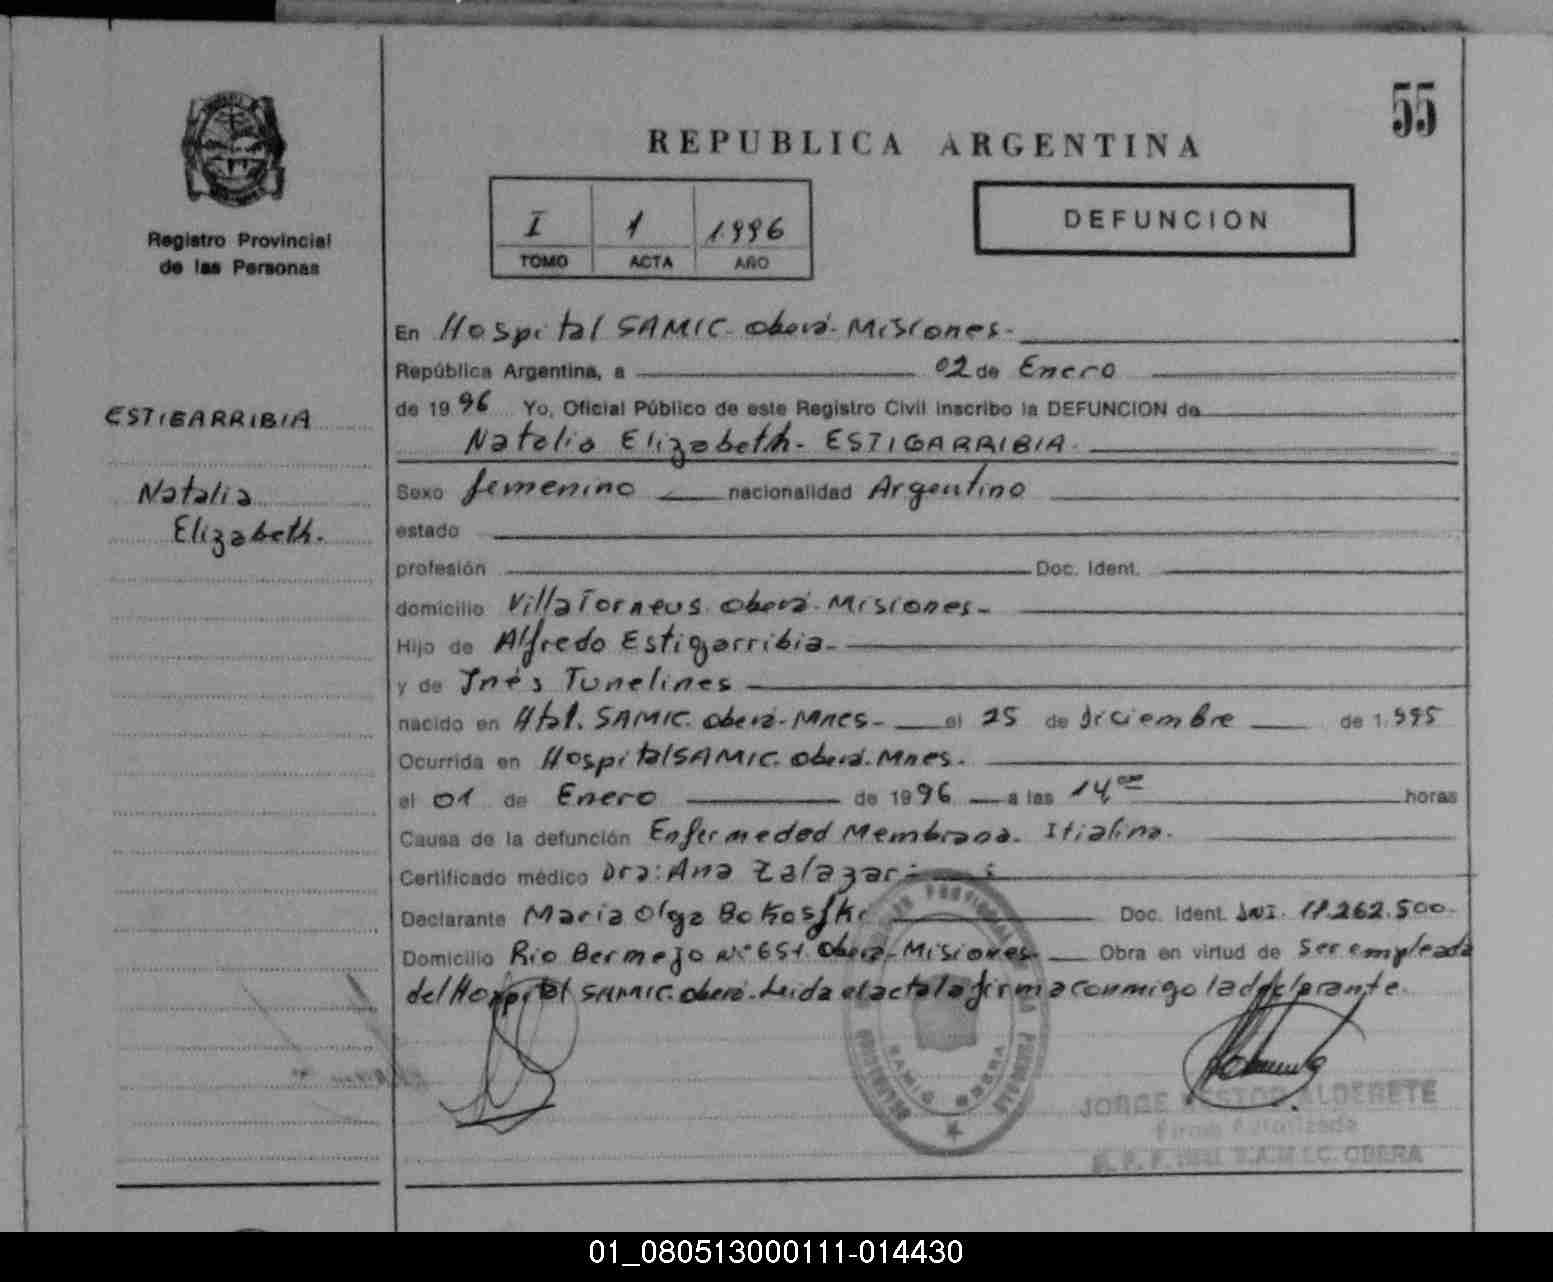 55
REPUBLICA ARGENTINA
Registro Provincial
de las Personas
I 1 1996
TOMO ACTA AÑO
DEFUNCION
ESTIGARRIBIA
Natalia
Elizabeth.
En Hospital SAMIC. Oberá. Misiones.
República Argentina, a 02 de Enero
de 1996 Yo, Oficial Público de este Registro Civil inscribo la DEFUNCION de
Natalia Elizabeth. ESTIGARRIBIA.
Sexo femenino nacionalidad Argentina
estado
profesión Doc. Ident.
domicilio Villa Torneus. Oberá. Misiones.
Hijo de Alfredo Estigarribia.
y de Inés Tunelines
nacido en Htal. SAMIC. Oberá. Mnes. el 25 de diciembre de 1.995
Ocurrida en Hospital SAMIC. Oberá. Mnes.
el 01 de Enero de 1996 a las 14,00 horas
Causa de la defunción Enfermedad Membrana. Itialina.
Certificado médico Dra: Ana Zalazar
Declarante Maria Olga Doc. Ident. DNI. .262.500.
Domicilio Rio Bermejo N° 651. Oberá. Misiones. Obra en virtud de Ser empleada
del Hospital SAMIC. Oberá. Leida el acta la firma conmigo la declarante.
REGISTRO PROVINCIAL DE LAS PERSONAS
SAMIC OBERA
JORGE NESTOR ALDERETE
Firma Autorizada
S.A.M.I.C. OBERA
01_080513000111-014430